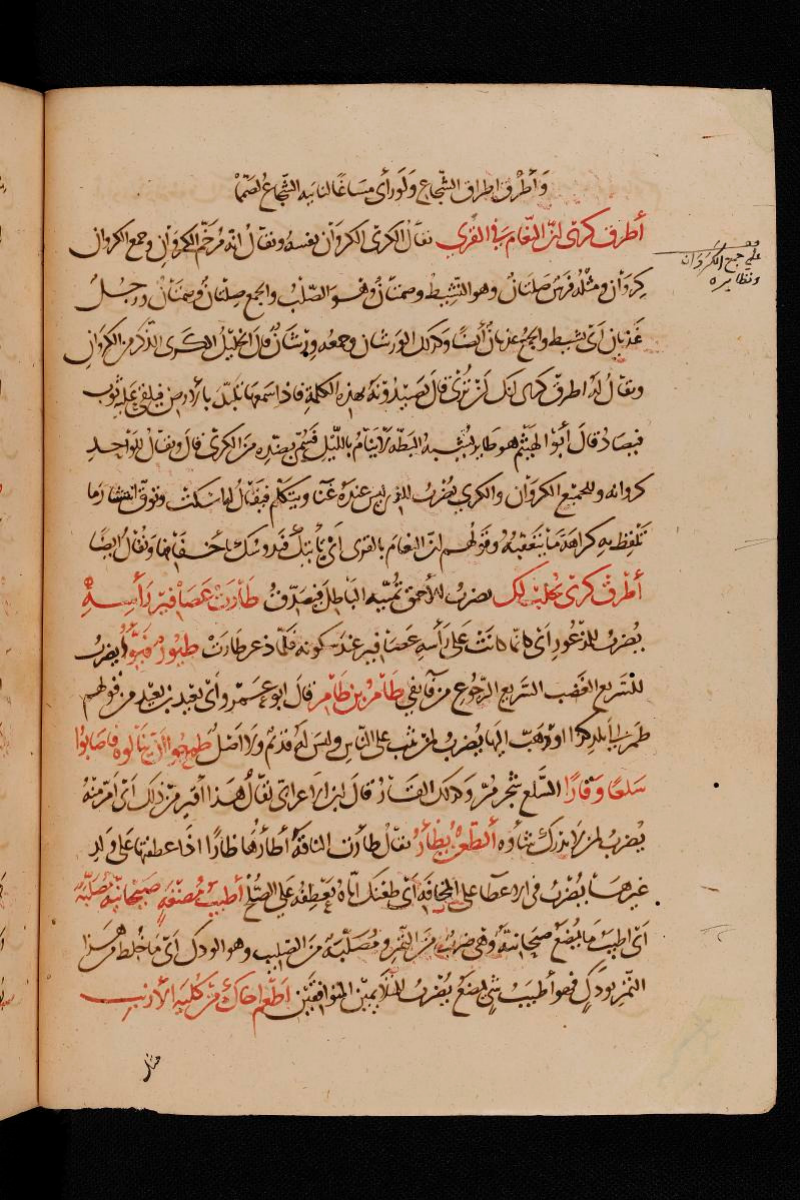 وَأَطْرَقَ اطراق الشّجاع وَلَو رأى مسَاغًا لنابيه الشّجاعُ لصَمّمَا
أطرق كرى إنّ النّعام في القرى يقال الكرى الكروان نفسه ويقال انه مُرخّم الكروان وجمع الكروان
كِرَوان ومثله فرس صلتان وهو النّشيط وصميان وهو الصّلب والجمع صِلتان وصِميان ورجل
غذيان اى نشيط والجمع غذيان أيضا وكذلك الورشان وجمعه ورشان قال الخليل الكرى الذكر من الكروان
ويقال له اطرق كرى انك لن تُرى قال يصيدونه بهذه الكلمة فاذا سمعها تلبّد بالارض فيلقى عليه ثوب
فيصاد قال أبو الهيثم هو طاير يُشبه البطّة لا ينام بالليل فسُمّى بضدّه من الكرى قال ويقال للواحد
كروانه وللجميع الكروان والكرى يُضرب للذى ليس عنده غنا ويتكلم فيقال له اسكت وتوقّ انتشار ما
تلفظ به كراهة ما يتعقبه وقولهم انّ النعام بالقرى اى تأتيك فتدوسك بأخفافها ويقال ايضا
أطرق كرى يحلب لك يضرب للأحمق تُمنّيه الباطل فيصدّق طارت عصافير رأسه
يُضرب للمذعور اى كانما كانت على رأسه عصافير عند سكونه فلمّا ذعر طارت طيور فيّوء يضرب
للسّريع الغضب السّريع الرّجوع من فآ يفي طامر بن طامر قال ابو عمرو اى بعيد بن بعيد من قولهم
طمر الى بلد كذا اذا ذهب اليها يُضرب لمن يثب على النّاس وليس له قدم ولا اصل طمحوا ان ينالوه فاصابوا
سَلعًا وقارًا السّلع شجر مُرّ وكذلك القار قال ابن الاعرابى يقال هذا أقير من ذلك اى أمرّ منه
يُضرب لمن لا يدرك شأوه الطّعن يظأر يقال ظأرت الناقة أظأرها ظأرا اذا عطفتها على ولد
غيرها يُضرب فى الاعطا على المخافة اى طعنك ايّاه يعطفه على الصّلح أطيب مُضغةٍ صَيحانيّة مُصلّبة
اى اطيب ما يُمضغ صيحانيّة وهى ضرب من التّمر ومصلّبة من الصّليب وهو الودك اى ما خُلط من هذا
التّمر بودَكٍ فهو أطيب شى يُمضغ يُضرب للمتلايمين المتوافقين اطعم اخاك من كلية الارنب
على جمع الكروان
ونظايره
مثل